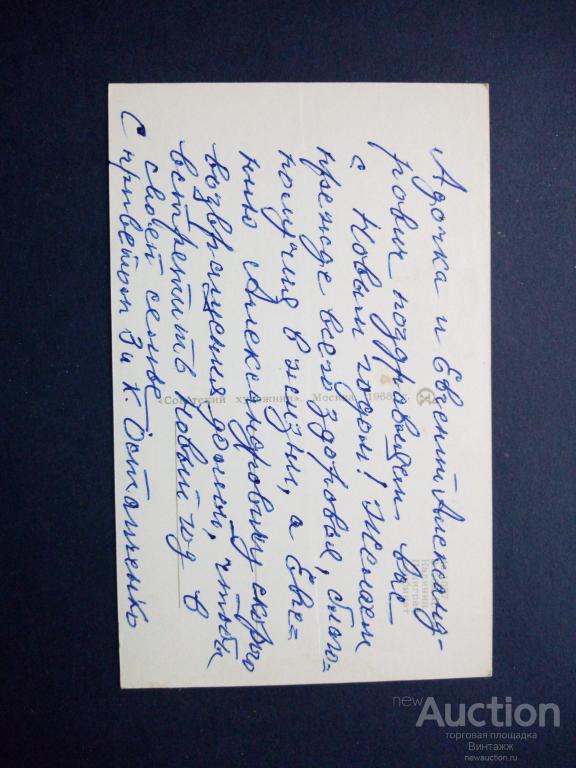 Адочка и Евгений Александ-
рович поздравляем вас
с Новым годом! Желаем
прежде всего здоровья, благо=
получия в жизни, а Евге=
нию Александровичу скорого
возвращения домой, чтобы
встретить Новый год в
своей семье.
С приветом З и К. Остапченко
«Советский художник». Москва. 1968
newAuction
торговая площадка
Винтажж
newauction.ru